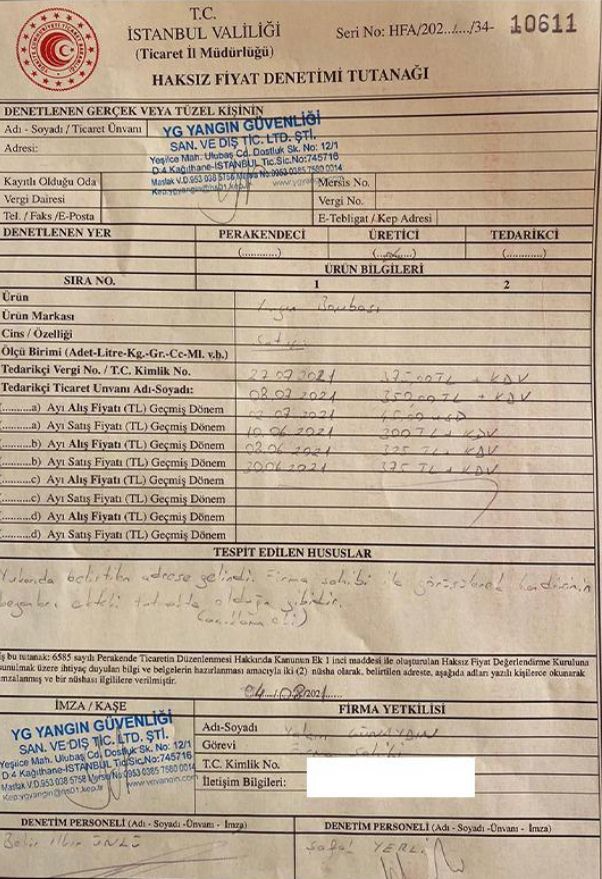 T.C.
İSTANBUL VALİLİĞİ
(Ticaret İl Müdürlüğü)
Seri No: HFA/202..../..../34- 10611
HAKSIZ FİYAT DENETİMİ TUTANAĞI
DENETLENEN GERÇEK VEYA TÜZEL KİŞİNİN
Adı - Soyadı / Ticaret Ünvanı
YG YANGIN GÜVENLİĞİ
SAN. VE DIŞ TİC. LTD. ŞTİ.
Adresi:
Yeşilce Mah. Ulubaş Cd. Dostluk Sk. No: 12/1
D:4 Kağıthane-İSTANBUL Tic.Sic.No:745716
Maslak V.D.953 038 5758 Mersis No:0953 0385 7580 0014
Kayıtlı Olduğu Oda
Mersis No.
Vergi Dairesi
Vergi No.
Tel. / Faks /E-Posta
E-Tebligat / Kep Adresi
DENETLENEN YER PERAKENDECİ ÜRETİCİ TEDARİKÇİ
(............) (............) (............)
ÜRÜN BİLGİLERİ
SIRA NO. 1 2
Ürün
Ürün Markası
Cins / Özelliği
Ölçü Birimi (Adet-Litre-Kg.-Gr.-Cc-Ml. v.b.)
Tedarikçi Vergi No. / T.C. Kimlik No. 27.07.2021 375.00TL + KDV
Tedarikçi Ticaret Unvanı Adı-Soyadı: 08.07.2021 350.00TL + KDV
(..........a) Ayı Alış Fiyatı (TL) Geçmiş Dönem 02.07.2021 45.00 USD
..........a) Ayı Satış Fiyatı (TL) Geçmiş Dönem 10.06.2021 300 TL + KDV
(..........b) Ayı Alış Fiyatı (TL) Geçmiş Dönem 325 TL + KDV
..........b) Ayı Satış Fiyatı (TL) Geçmiş Dönem 375 TL + KDV
(..........c) Ayı Alış Fiyatı (TL) Geçmiş Dönem
..........c) Ayı Satış Fiyatı (TL) Geçmiş Dönem
..........d) Ayı Alış Fiyatı (TL) Geçmiş Dönem
..........d) Ayı Satış Fiyatı (TL) Geçmiş Dönem
TESPİT EDİLEN HUSUSLAR
Yukarıda belirtilen adrese gelindi. Firma sahibi ile görüşülerek kendisinin
beyanları ekteki tutanakta olduğu gibidir.
iş bu tutanak: 6585 sayılı Perakende Ticaretin Düzenlenmesi Hakkında Kanunun Ek 1 inci maddesi ile oluşturulan Haksız Fiyat Değerlendirme Kuruluna
sunulmak üzere ihtiyaç duyulan bilgi ve belgelerin hazırlanması amacıyla iki (2) nüsha olarak, belirtilen adreste, aşağıda adları yazılı kişilerce okunarak
imzalanmış ve bir nüshası ilgililere verilmiştir.
04/08/2021
İMZA / KAŞE
FİRMA YETKİLİSİ
YG YANGIN GÜVENLİĞİ
SAN. VE DIŞ TİC. LTD. ŞTİ.
Yeşilce Mah. Ulubaş Cd. Dostluk Sk. No: 12/1
D:4 Kağıthane-İSTANBUL Tic.Sic.No:745716
Maslak V.D.953 038 5758 Mersis No:0953 0385 7580 0014
Adı-Soyadı GÜNAYDIN
Görevi Firma Sahibi
T.C. Kimlik No.
İletişim Bilgileri:
DENETİM PERSONELİ (Adı - Soyadı -Ünvanı - İmza)
DENETİM PERSONELİ (Adı - Soyadı -Ünvanı - İmza)
ÜNLÜ
YERLİ